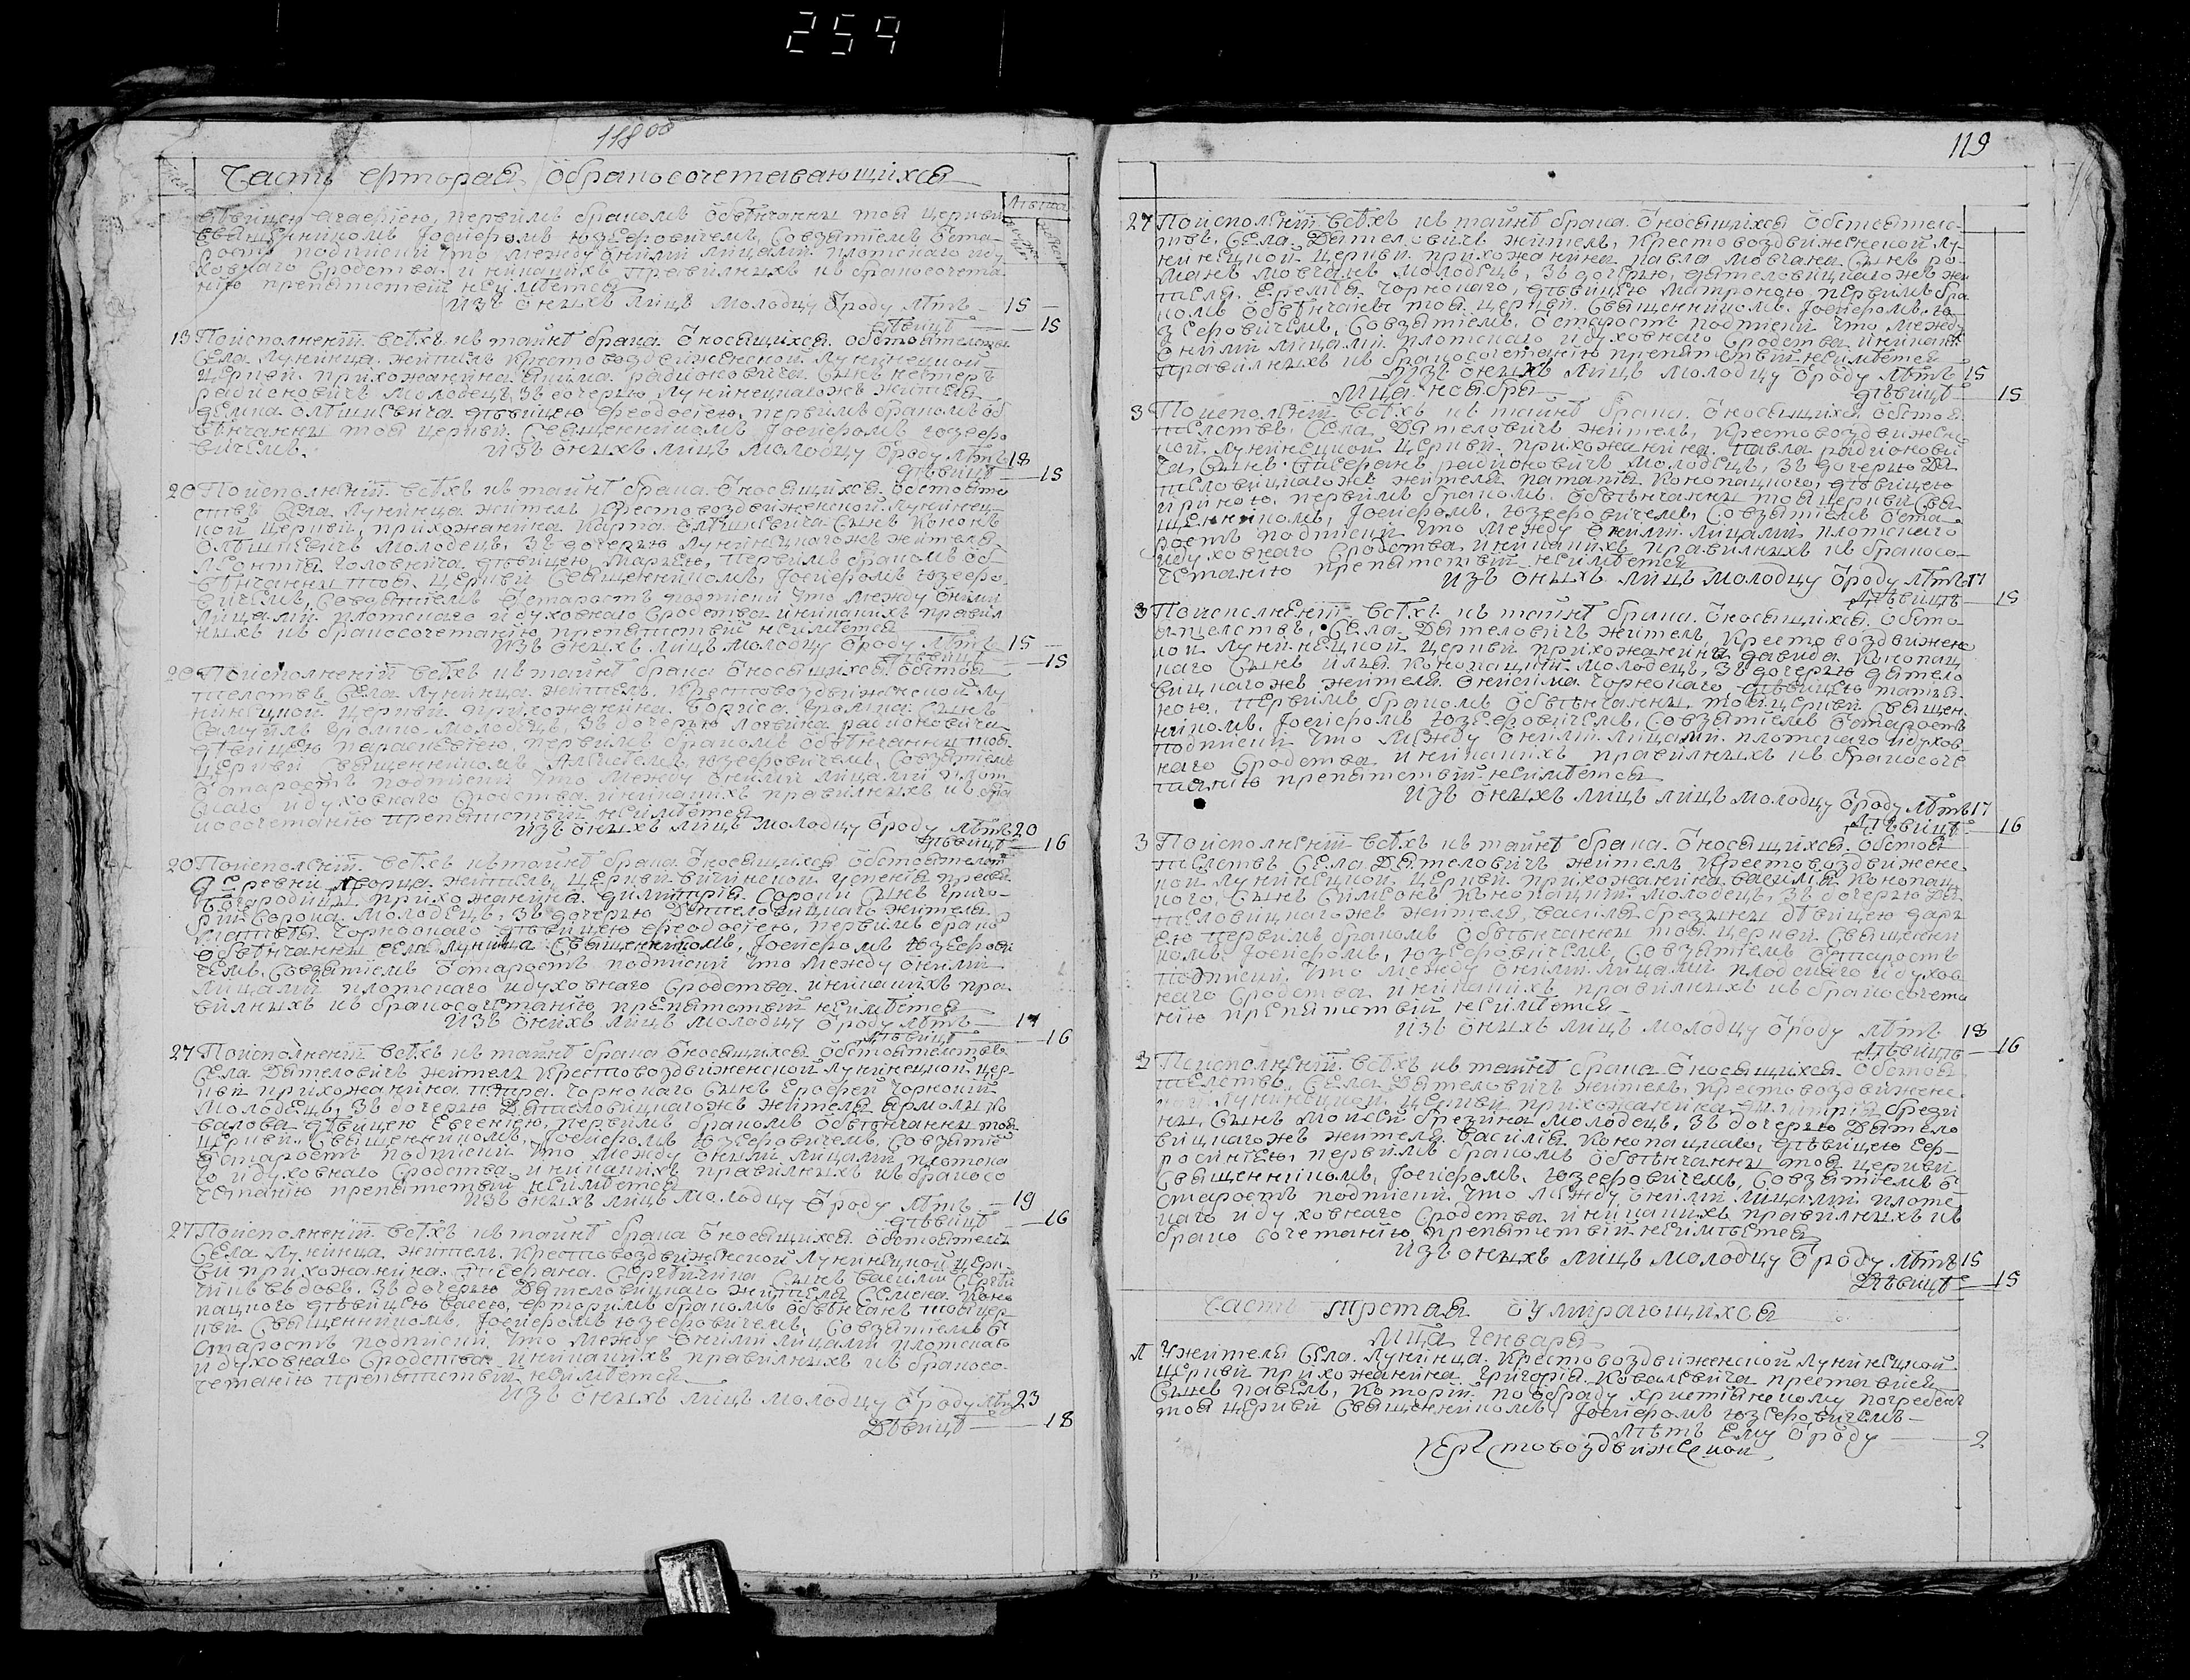 259
118 об
Часть фторая, о бракосочетавающихся
Числа
Лѣтна
двицею Агафиею, первимъ бракомъ обвѣнчанны тоя церкви
священникомъ Иосифомъ Юзефовичемъ, совзятиемъ оста-
ростъ подписки что между оними лицами плотскаго иду
ховнаго сродства и никакихъ правилныхъ къ бракосочета
нию препятствий неимѣется
изъ оныхъ лицъ молодцу ѿроду лѣтъ 15
дѣвицѣ 15
13 Поисполнении всѣхъ къ тайнѣ брака ѿносящихся обстоятелствъ
села Лунинца житель Крестовоздвиженской Лунинецкой
церкви прихожанина Якима Радионовича сынъ Нестеръ
Радионовичъ молодецъ, зъ дочерью Лунинецкагожъ жителя
Демка Олѣшкевича дѣвицею Феодосиею, первимъ бракомъ об
вѣнчанны тоя церкви священникомъ Иосифомъ Юзефо
вичемъ. изъ оныхъ лицъ молодцу ѿроду лѣтъ 18
дѣвицѣ 15
20 Поисполнении всѣхъ къ тайнѣ брака ѿносящихся обстояте
ствъ села Лунинца житель Крестовоздвиженской Лунинец-
кой церкви, прихожанина Карпа Олѣшкевича сынъ Кононъ
Олѣшкевичъ молодецъ, зъ дочерью Лунинецкагожъ жителя
Леонтия Головича дѣвицею Мариею, первимъ бракомъ об-
вѣнчанны тоя церкви священникомъ, Иосифомъ Юзефо-
вичемъ, совзятиемъ ѿстаростъ подписки что между оними
лицами плотскаго и духовнаго сродства и никакихъ правил
ныхъ къ бракосочетанию препятствий неимѣется
изъ оныхъ лицъ молодцу ѿроду лѣтъ 15
дѣвицѣ 15
20 Поисполнении всѣхъ къ тайнѣ брака ѿносящихся обстоя
телствъ села Лунинца житель, Крестовоздвиженской Лу
нинецкой церкви прихожанина Бориса Громка сынъ
Самуилъ Громко молодецъ, зъ дочерью Логвина Радионовича
дѣвицею Параскевиею, первимъ бракомъ обвѣнчанны тоя
церкви священникомъ Юзефовичемъ, совзятиемъ
ѿстаростъ подписки что между оними лицами плот
скаго идуховнаго сродства и никакихъ правилныхъ къ бра
косочетанию препятствий неимѣется
изъ оныхъ лицъ молодцу ѿроду лѣтъ 20
дѣвицѣ 16
20 Поисполнении всѣхъ къ тайнѣ брака ѿносящихся обстоятелст
деревни Дворца житель, церкви Вичинской Успения пресвя
Богородицы прихожанина Димитрия Сороки сынъ Григо-
рий Сорока молодецъ, зъ дочерью Дятеловицкаго жителя
Матвѣя Чорнокаго дѣвицею Феодосиею, первимъ брако
обвѣнчанны села Лунина священникомъ, Иосифомъ Юзефови
чемъ, совзятиемъ ѿстаростъ подписки что между оними
лицами плотскаго идуховнаго сродства и никакихъ пра-
вилныхъ къ бракосочетанию препятствий неимѣется
изъ онихъ лицъ молодцу ѿроду лѣтъ 17
дѣвицѣ 16
27 Поисполнении всѣхъ къ тайнѣ брака ѿносящихся обстоятелствъ
села Дятеловичъ житель Крестовоздвиженской Лунинецкой, цер-
кви прихожанина Петра Чорнокаго сынъ Ерофей Чорнокий
молодецъ, зъ дочерью Дятеловицкагожъ жителя Ярмолы Ко
валова дѣвицею Евгениею, первимъ бракомъ обвѣнчанны тоя
церкви священникомъ, Иосифомъ Юзефовичемъ, совзятие
ѿстаростъ подписки что между оними лицами плотска
го идуховнаго сродства и никакихъ правилныхъ къ бракосо
четанию препятствий неимѣется
изъ оныхъ лицъ молодцу ѿроду лѣтъ 19
дѣвицѣ 16
27 Поисполнении всѣхъ къ тайнѣ брака ѿносящихся обстоятелст
села Лунинца житель Крестовоздвиженской Лунинецкой церк
ви прихожанина Стефана Сергѣйчика сынъ Василий Сергѣй
чикъ вдовъ, зъ дочерью Дятеловицкаго жителя Семена Коно
пацкого дѣвицею Васею, фторимъ бракомъ обвѣнчанъ тоя цер
кви священникомъ, Иосифомъ Юзефовичемъ, совзятиемъ ѿ
старостъ подписки, что между оними лицами плотскаго
идуховнаго сродства и никакихъ правилныхъ къ бракосо-
четанию препятствий неимѣется
изъ оныхъ лицъ молодцу ѿроду лѣтъ 23
дѣвицѣ 18
119
27 Поисполнении всѣхъ къ тайнѣ брака ѿносящихся обстоятелс-
твъ, села Дятеловичъ житель, Крестовоздвиженской Лу-
нинецкой церкви прихожанина Павла Мовчана сынъ Ро-
манъ Мовчанъ молодецъ, зъ дочерью, Дятеловицкагожъ жи
теля Еремѣя Чорнокаго, дѣвицею Матроною, первимъ бра
комъ обвѣнчаны тоя церкви священникомъ, Иосифомъ Ю-
зефовичемъ, совзятиемъ ѿстаростъ подписки что между
оними лицами плотскаго идуховнаго сродства и никакихъ
правилныхъ къ бракосочетанию препятствий неимѣется
изъ оныхъ лицъ молодцу ѿроду лѣтъ 15
мца ноября дѣвицѣ 15
3 Поисполнении всѣхъ къ тайнѣ брака ѿносящихся обстоя
телствъ, села Дятеловичъ житель, Крестовоздвиженс-
кой Лунинецкой церкви прихожанина Павла Радионови
ча сынъ Стефанъ Радионовичъ молодецъ, зъ дочерью Дя
теловицкагожъ жителя Потапия Конопацкого, дѣвицею
Ириною, первимъ бракомъ обвѣнчанны тоя церкви свя
щенникомъ, Иосифомъ, Юзефовичемъ, совзятиемъ ѿста
ростъ подписки что между оними лицами плотскаго
идуховнаго сродства и никакихъ правилныхъ къ бракосо-
четанию препятствий неимѣется
изъ оныхъ лицъ молодцу ѿроду лѣтъ 17
дѣвицѣ 15
3 Поисполнении всѣхъ къ тайнѣ брака ѿносящихся обсто-
ятелствъ, села Дятеловичъ житель, Крестовоздвиженс
кой Лунинецкой церкви прихожанина Давида Конопац
каго сынъ Илия Конопацкий молодецъ, зъ дочерью Дятело
вицкагожъ жителя Онисима Чорнокаго дѣвицею Татия
ною, первимъ бракомъ обвѣнчанны тоя церкви священ
никомъ, Иосифомъ Юзефовичемъ, совзятиемъ ѿстаростъ
подписки что между оними лицами плотскаго идухов-
наго сродства и никакихъ правилныхъ къ бракосоче
танию препятствий неимѣется
изъ оныхъ лицъ лицъ молодцу ѿроду лѣтъ 17
дѣвицѣ 16
3 Поисполнении всѣхъ къ тайнѣ брака ѿносящихся обстоя
телствъ села Дятеловичъ житель Крестовоздвиженс
кой Лунинецкой церкви прихожанина Василия Конопац
кого, сынъ Симеонъ Конопацкий молодецъ, зъ дочерью Дя
теловицкагожъ жителя, Василя Брезины дѣвицею Дари
ею первимъ бракомъ обвѣнчанны тоя церкви священни
комъ, Иосифомъ, Юзефовичемъ, совзятиемъ ѿстаростъ
подписки, что между оними лицами плодскаго идухов
наго сродства и никакихъ правилныхъ къ бракосочета
нию препятствий неимѣется
изъ оныхъ лицъ молодцу ѿроду лѣтъ 18
дѣвицѣ 16
3 Поисполнении всѣхъ къ тайнѣ брака ѿносящихся обстоя
телствъ, села Дятеловичъ житель, Крестовоздвиженс
кой Лунинецкой церкви прихожанина Димитрия Брези
ны, сынъ Моисей Брезина молодецъ, зъ дочерью Дятело
вицкагожъ жителя Василия Конопацкаго, дѣвицею Еф-
росиниею, первимъ бракомъ обвѣнчанны тоя церкви
священникомъ, Иосифомъ, Юзефовичемъ, совзятиемъ ѿ
старостъ подписки, что между оними лицами плотс
каго идуховнаго сродства и никакихъ правилныхъ къ
брако сочетанию препятствий неимѣется
изъ оныхъ лицъ молодцу ѿроду лѣтъ 15
дѣвицѣ 15
Часть третая о умирающихся
мца Генваря
Л Ужителя села Лунинца Крестовоздвиженской Лунинецкой
церкви прихожанина Григория Ковалевича преставися
сынъ Павелъ, которий пообряду христианскому погребенъ
тоя церкви священникомъ, Иосифомъ Юзефовичемъ
лѣтъ ему ѿроду 2
Крестовоздвиженской